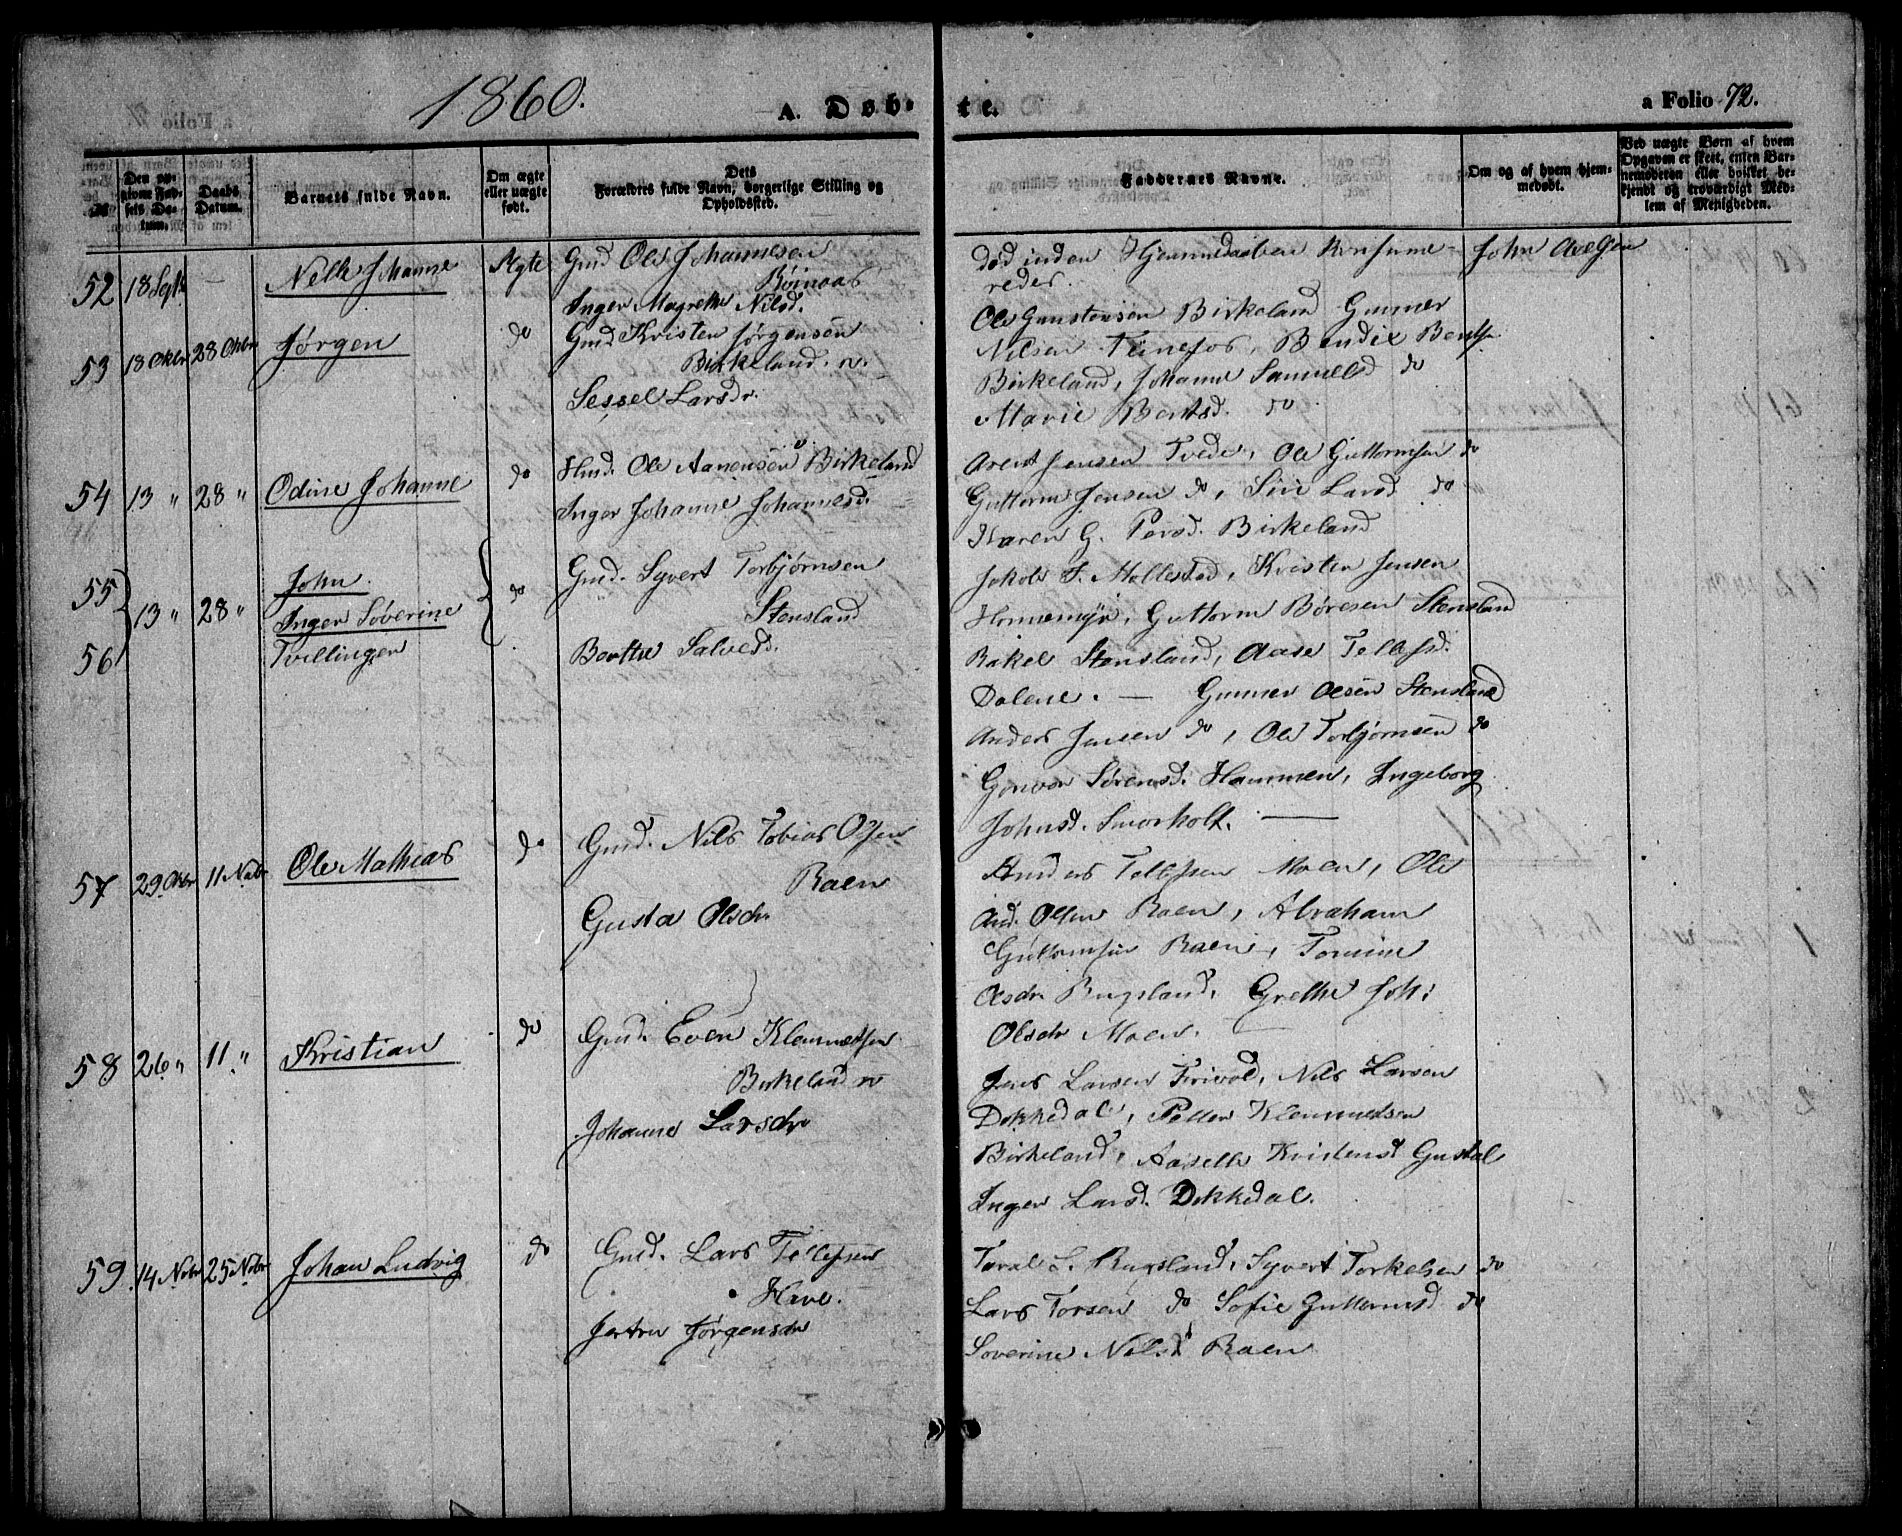 1860.
A. Døb-
te.
a Folio 72.
№
Den opgivne Fødsels Datum.
Daabs Datum.
Barnets fulde Navn.
Om ægte eller uægte født.
Dets Forældres fulde Navn, borgerlige Stilling og Opholdssted.
Faddernes Navne.
Om og af hvem hjemmedøbt.
Ved uægte Børn af hvem Opgaven er skeet, enten Barnemoderen eller hvilket bekjendt og troværdigt Medlem af Menigheden.
52 18 Septr — Johanne Ægte Gmd Ole Johannesen
Inger Magrethe Nilsd.
død inden Hjemmedaaben
John
53 18 Okbr 28 Okbr Jørgen do Gmd Kristen Jørgensen
Birkeland. v.
Sessel Larsdr.
Ole Gunstensen Birkeland Gunner
Nilsen Tinefos, Bendix Bents.
Birkeland, Johanne Samuelsd do
Marie Bentsd. do
54 13 " 28 " Odine Johanne do Hmd. Ole Aanensen Birkeland
Inger Johanne Johannesd.
Arent Jensen Tvede, Ole Guttormsen do
Guttorm Jensen do, Siri Larsd do
Karen G. Persd. Birkeland
55 John
56 13 " 28 " Inger Søverine do Gmd. Syvert Torbjørnsen
Tvillinger
Stensland
Berthe Salvesd.
Jakob T. Mollestad, Kristen Jensen
Honnemyr, Guttorm Børesen Stensland
Rakel Stensland, Aase Tellefsd.
Dalene. — Gunner Olsen Stensland
Anders Jensen do, Ole Torbjørnsen do
Gonvor Sørensd. Hammen, Ingeborg
Johnsd. Smorholt. —
57 29 Okbr 11 Nobr Ole Mathias do Gmd. Nils Tobias Olsen
Raen
Gusta Olsdr
Anders Tellefsen Moen, Ole
And. Olsen Raen, Abraham
Guttormsen Raen, Tomine
Olsdr Rugsland, Grethe Joh:
Olsdr Moen.
58 26 " 11 " Kristian do Gmd. Even Klemmetsen
Birkeland v
Johanne Larsdr
Jens Larsen Tvivol, Nils Larsen
Dokkedal, Petter Klemmetsen
Birkeland, Aaselle Kristensd Gustal
Inger Larsd. Dokkedal.
59. 14 Nobr 25 Nobr Johan Ludvig do Gmd. Lars Tellefsen
Have.
Jørgensdr
Taral L. Rugsland, Syvert Torkelsen do
Lars Torsen do Sofie Guttormsd do
Soverine Nilsd Raen